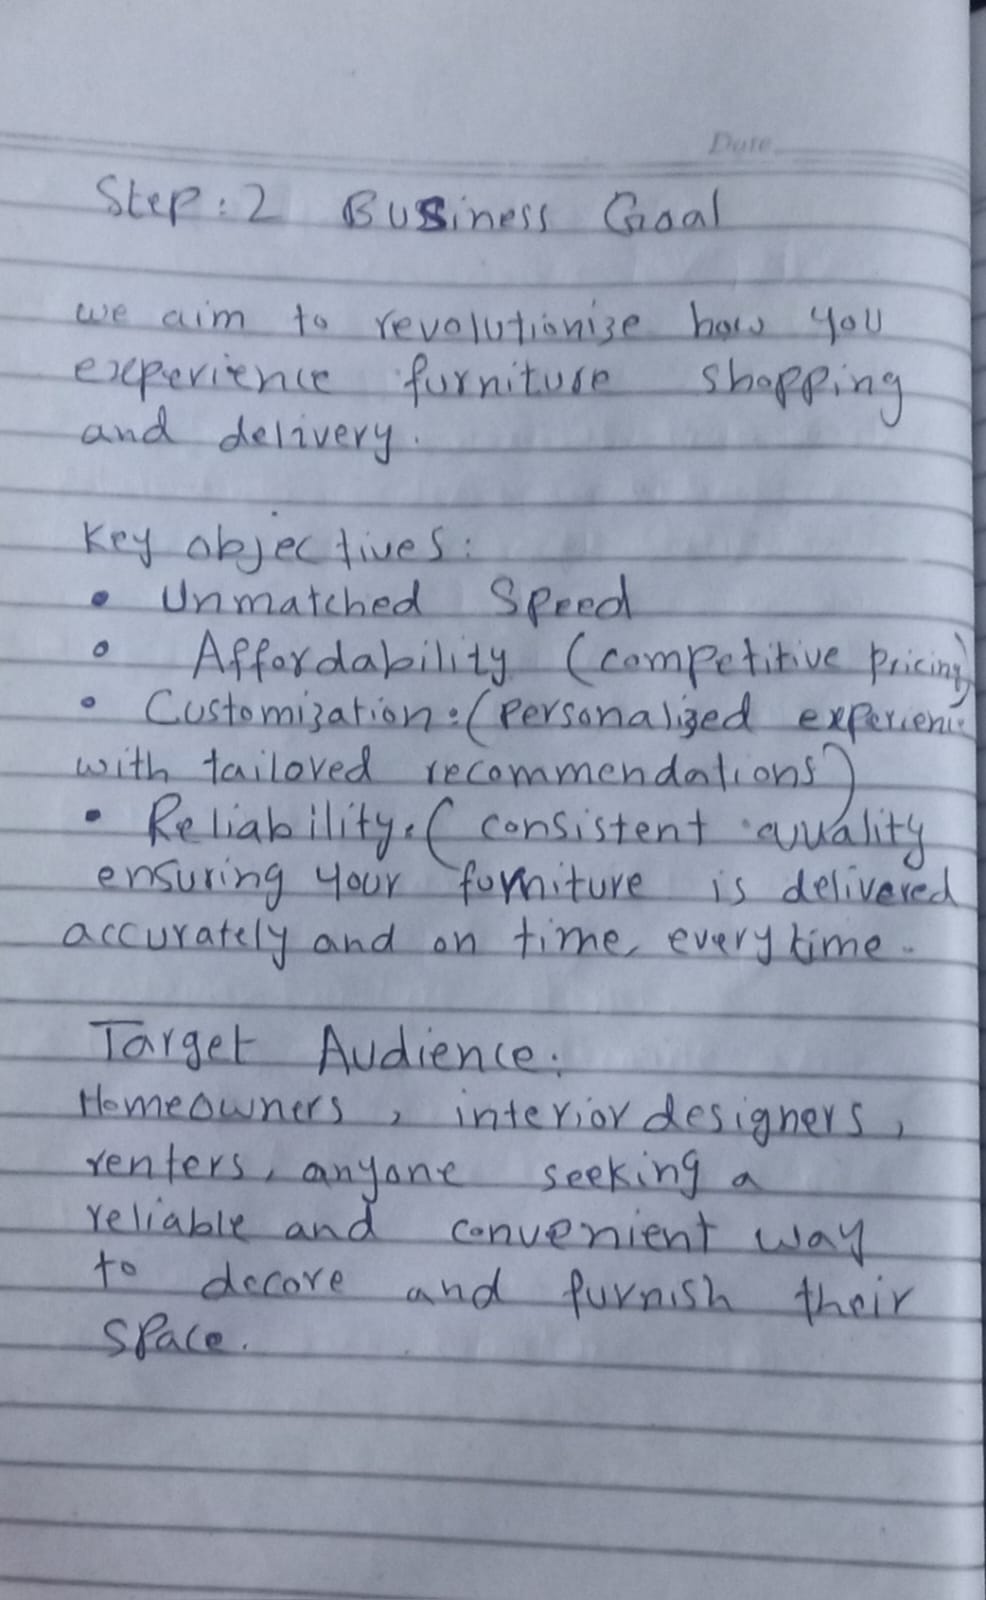 Date
Step: 2 Business Goal
we aim to revolutionize how you
experience furniture shopping
and delivery.
Key objectives:
• Unmatched Speed
• Affordability (competitive pricing)
• Customization: (Personalized experience
with tailored recommendations)
• Reliability: ( consistent quality
ensuring your furniture is delivered
accurately and on time, every time.
Target Audience:
Homeowners, interior designers,
renters, anyone seeking a
reliable and convenient way
to decore and furnish their
space.